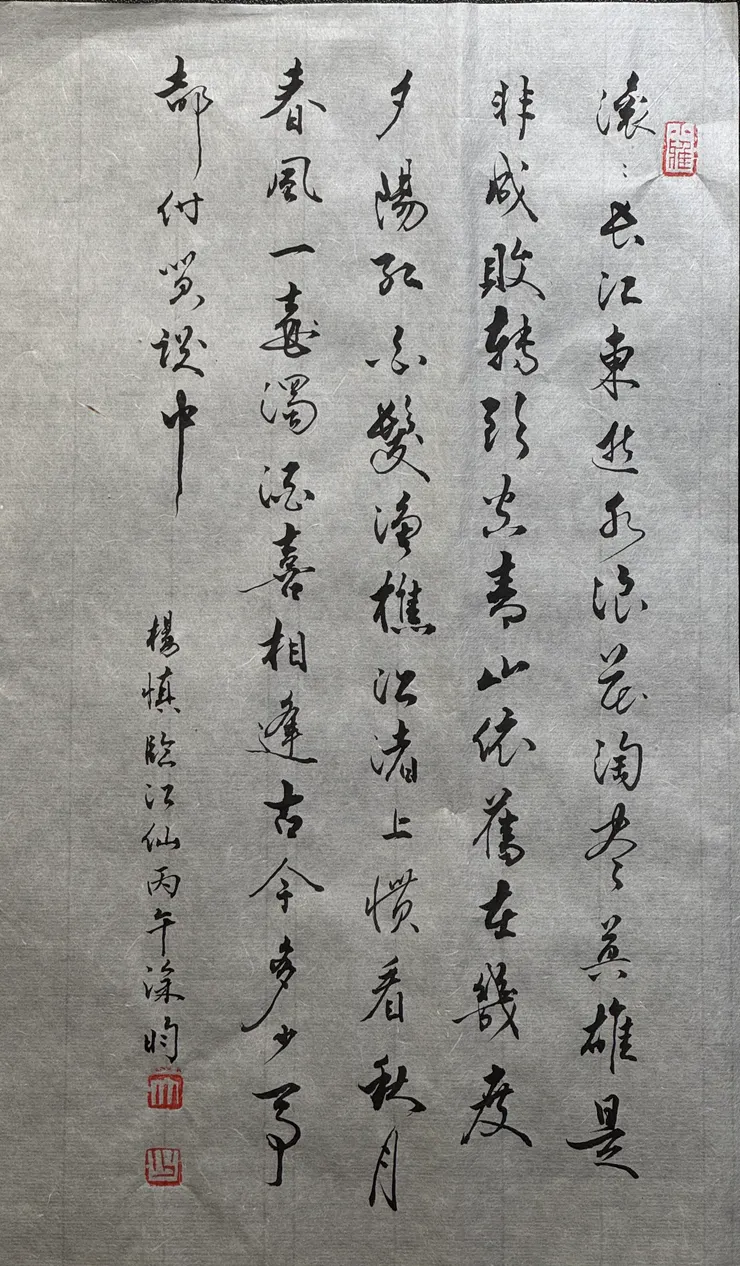 滚〻長江東逝水浪花淘尽英雄是
非成敗转頭空青山依舊在幾度
夕陽紅白髮漁樵江渚上慣看秋月
春風一壺濁酒喜相逢古今多少事
都付笑談中
楊慎臨江仙丙午深昀